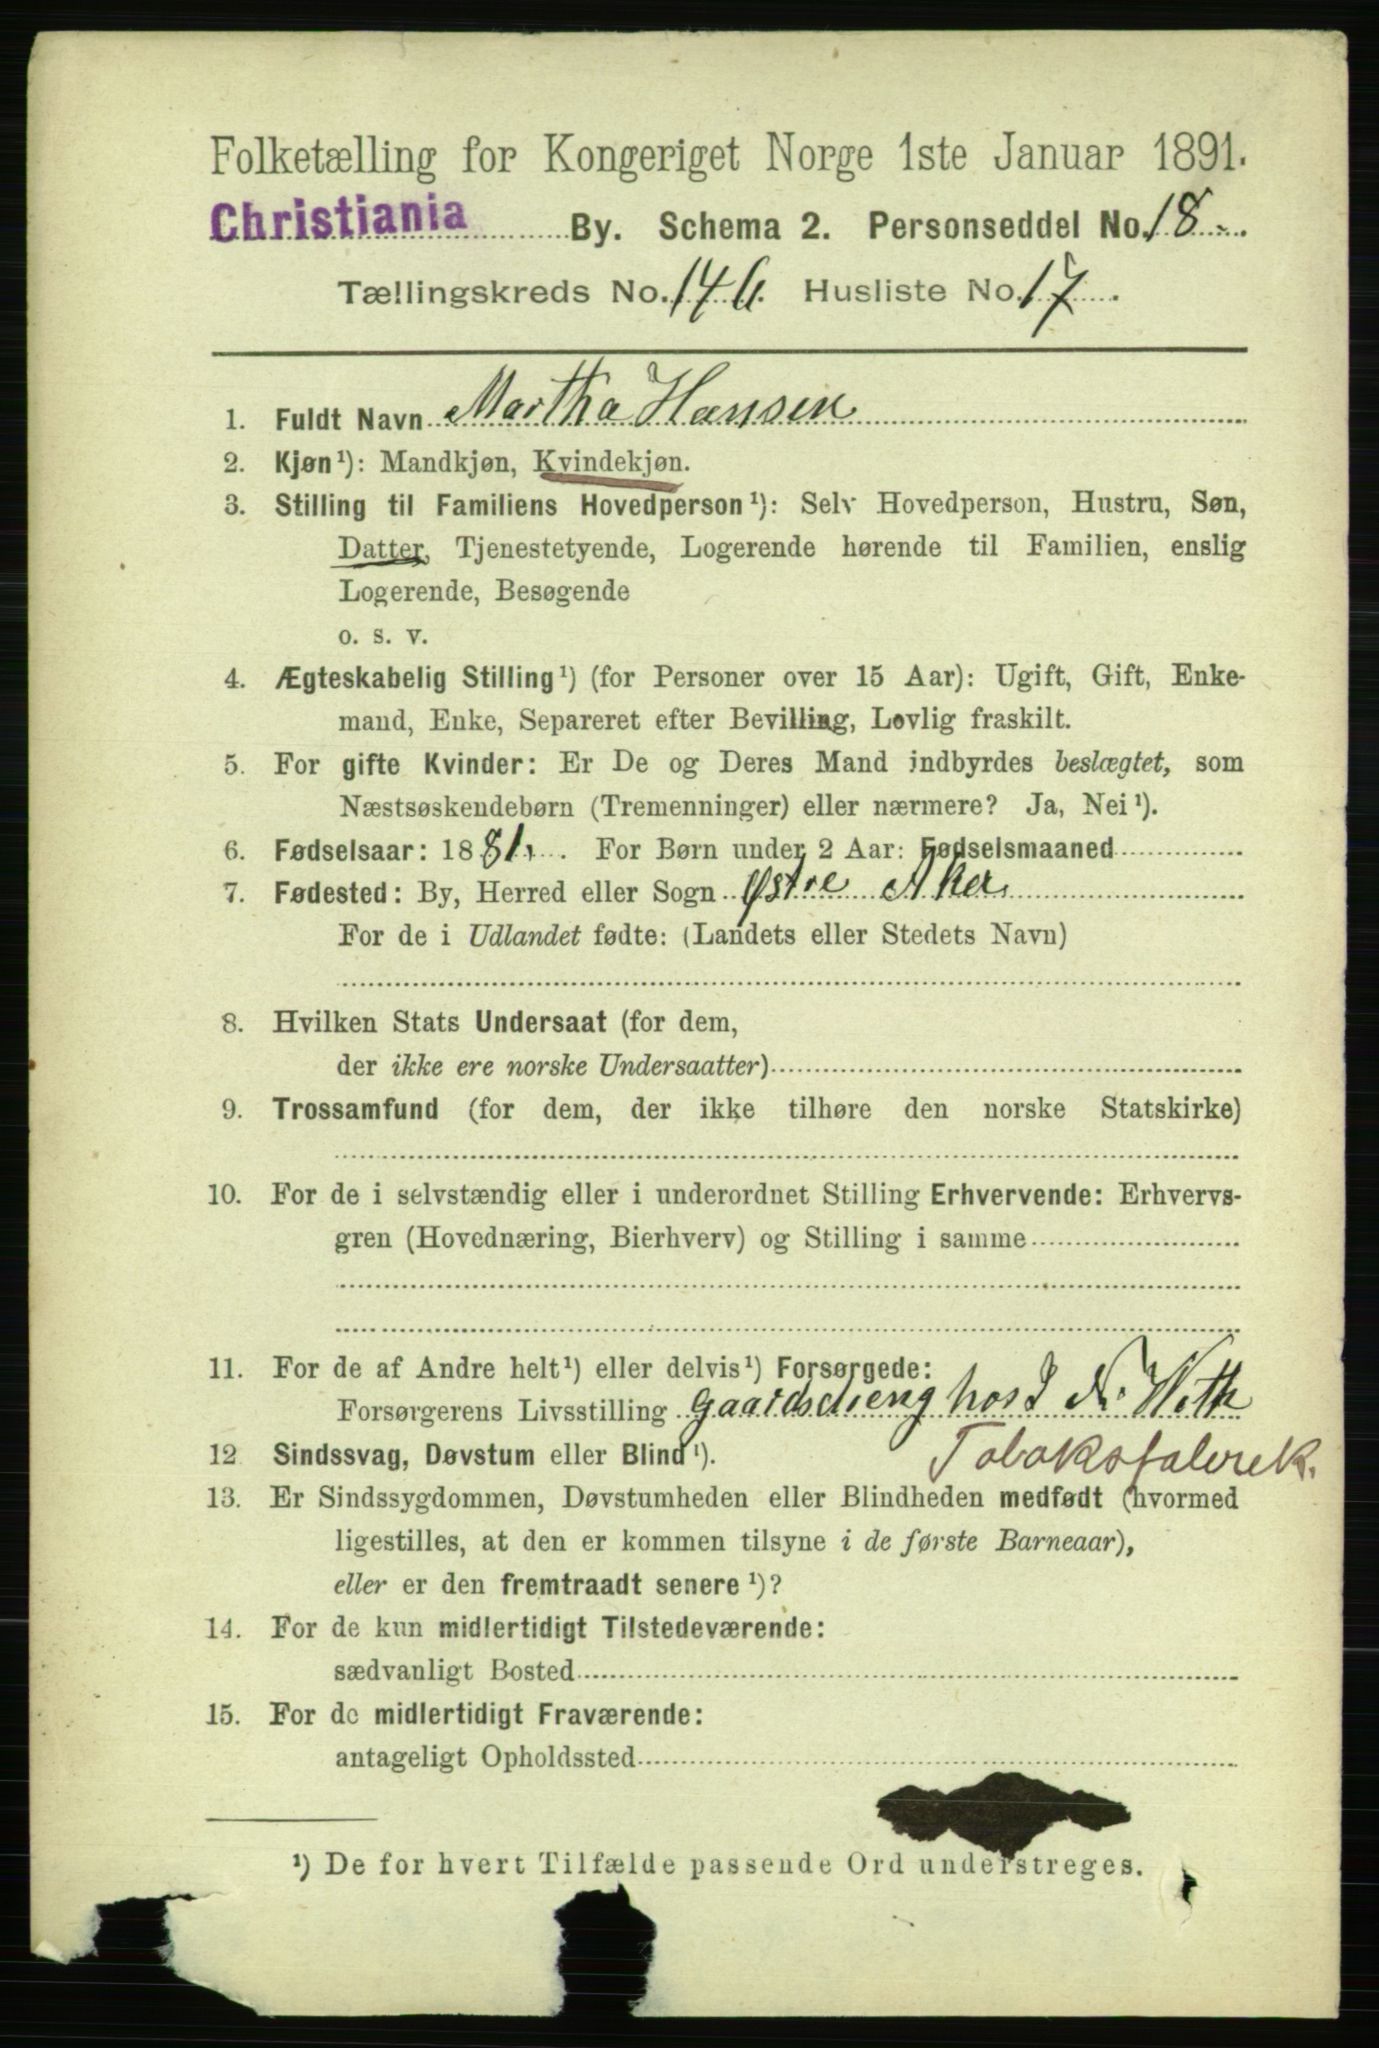 Folketælling for Kongeriget Norge 1ste Januar 1891.
Christiania By. Schema 2. Personseddel No. 18
Tællingskreds No. 146. Husliste No. 17
1. Fuldt Navn Martha Hansen
2. Kjøn¹): Mandkjøn, Kvindekjøn.
3. Stilling til Familiens Hovedperson¹): Selv Hovedperson, Hustru, Søn,
Datter, Tjenestetyende, Logerende hørende til Familien, enslig
Logerende, Besøgende
o. s. v.
4. Ægteskabelig Stilling¹) (for Personer over 15 Aar): Ugift, Gift, Enke-
mand, Enke, Separeret efter Bevilling, Lovlig fraskilt.
5. For gifte Kvinder: Er De og Deres Mand indbyrdes beslægtet, som
Næstsøskendebørn (Tremenninger) eller nærmere? Ja, Nei¹).
6. Fødselsaar: 1881. For Børn under 2 Aar: Fødselsmaaned
7. Fødested: By, Herred eller Sogn Østre Aker
For de i Udlandet fødte: (Landets eller Stedets Navn)
8. Hvilken Stats Undersaat (for dem,
der ikke ere norske Undersaatter)
9. Trossamfund (for dem, der ikke tilhøre den norske Statskirke)
10. For de i selvstændig eller i underordnet Stilling Erhvervende: Erhvervs-
gren (Hovednæring, Bierhverv) og Stilling i samme
11. For de af Andre helt¹) eller delvis¹) Forsørgede:
Forsørgerens Livsstilling Gaardsdreng hos
12 Sindssvag, Døvstum eller Blind¹). Tobaksfabrek.
13. Er Sindssygdommen, Døvstumheden eller Blindheden medfødt (hvormed
ligestilles, at den er kommen tilsyne i de første Barneaar),
eller er den fremtraadt senere¹)?
14. For de kun midlertidigt Tilstedeværende:
sædvanligt Bosted
15. For de midlertidigt Fraværende:
antageligt Opholdssted
¹) De for hvert Tilfælde passende Ord understreges.